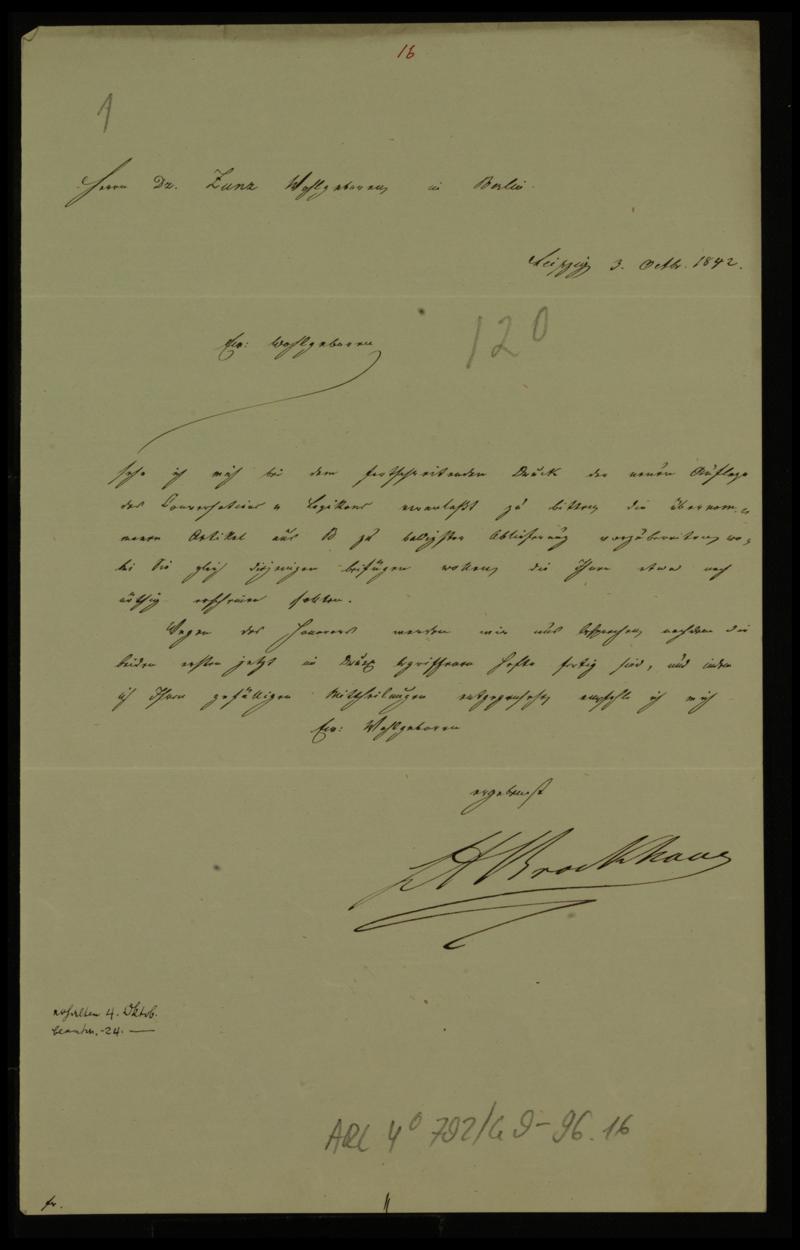 16
1
Herrn Dr. Zunz Wohlgeboren in Berlin.
Leipzig 3. Octbr. 1842.
Ew: Wohlgeboren
120
sehe ich mich bei dem fortschreitenden Druck der neuen Auflage
des Conversations-Lexikons veranlaßt zu bitten, die übernom-
menen Artikel aus B zu baldigster Ablieferung vorzubereiten, wo-
bei Sie gleich diejenigen beifügen wollen, die Ihnen etwa noch
nöthig erscheinen sollten.
Wegen des Honorars werden wir uns besprechen, nachdem die
beiden ersten jetzt im Druck begriffenen Hefte fertig sind, und indem
ich Ihren gefälligen Mittheilungen entgegensehe, empfehle ich mich
Ew: Wohlgeboren
ergebenst
Brockhaus
erhalten 4. Oktob.
beantw. -24. —
ARC 4° 792/G9-96.16
fr.